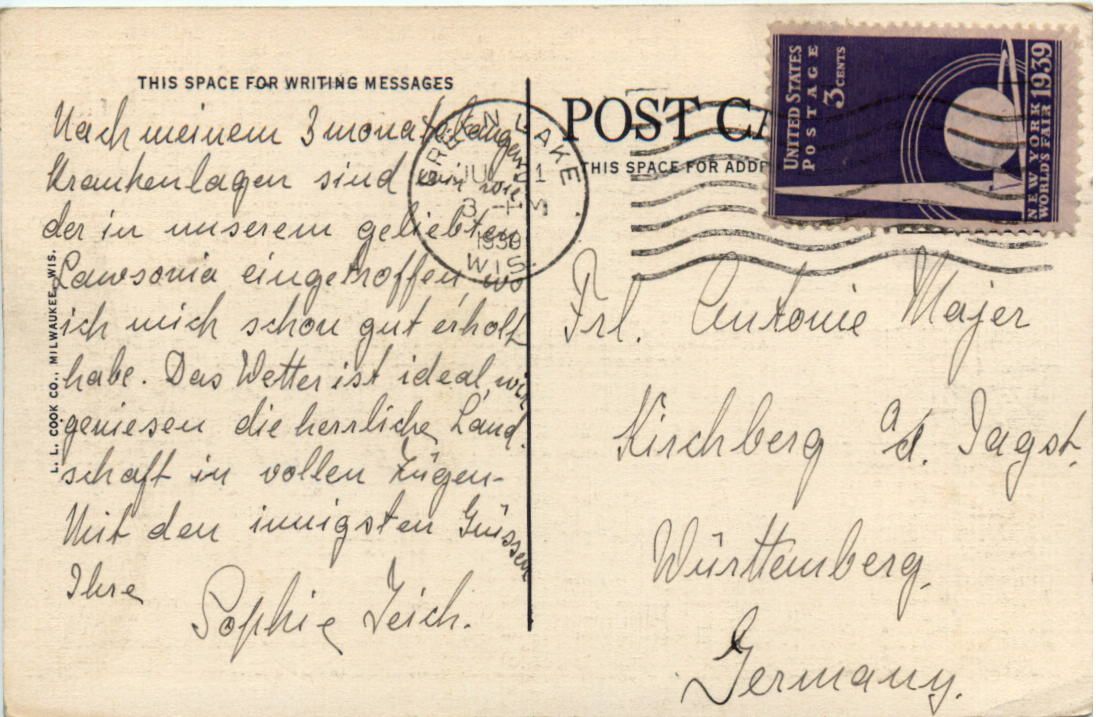 THIS SPACE FOR WRITING MESSAGES
Nach meinem 3 monatelangen
Krankenlagen sind wir wie
der in unserem geliebten
Lawsonia eingetroffen, wo
ich mich schon gut erholt
habe. Das Wetter ist ideal, wir
geniesen die herrliche Land-
schaft in vollen Zügen-
Mit den innigsten Grüssen
Ihre
Sophie Teich.
L. L. COOK CO., MILWAUKEE, WIS.
GREEN LAKE
1939
WIS.
POST CA
THIS SPACE FOR ADDR
UNITED STATES
POSTAGE
3 CENTS
NEW YORK
WORLD'S FAIR 1939
Frl. Antonie Majer
Kirchberg a/d. Jagst,
Württemberg,
Germany.